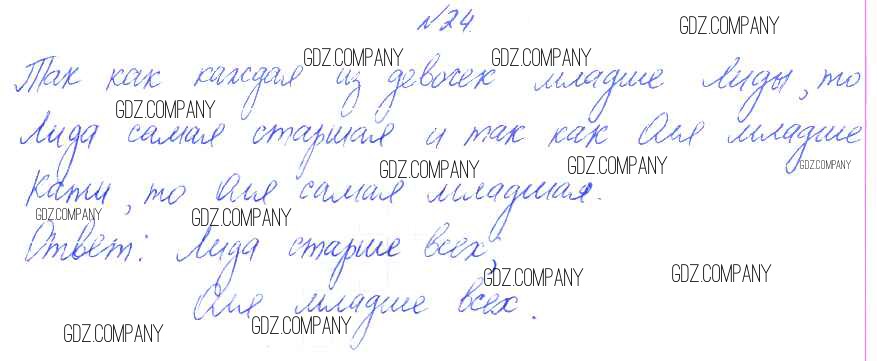 №24.
GDZ.COMPANY
GDZ.COMPANY GDZ.COMPANY
Так как каждая из девочек младше Лиды, то
GDZ.COMPANY
Лида самая старшая и так как Оля младше
GDZ.COMPANY GDZ.COMPANY GDZ.COMPANY
Кати, то Оля самая младшая.
GDZ.COMPANY GDZ.COMPANY
Ответ: Лида старше всех,
GDZ.COMPANY GDZ.COMPANY
Оля младше всех.
GDZ.COMPANY GDZ.COMPANY